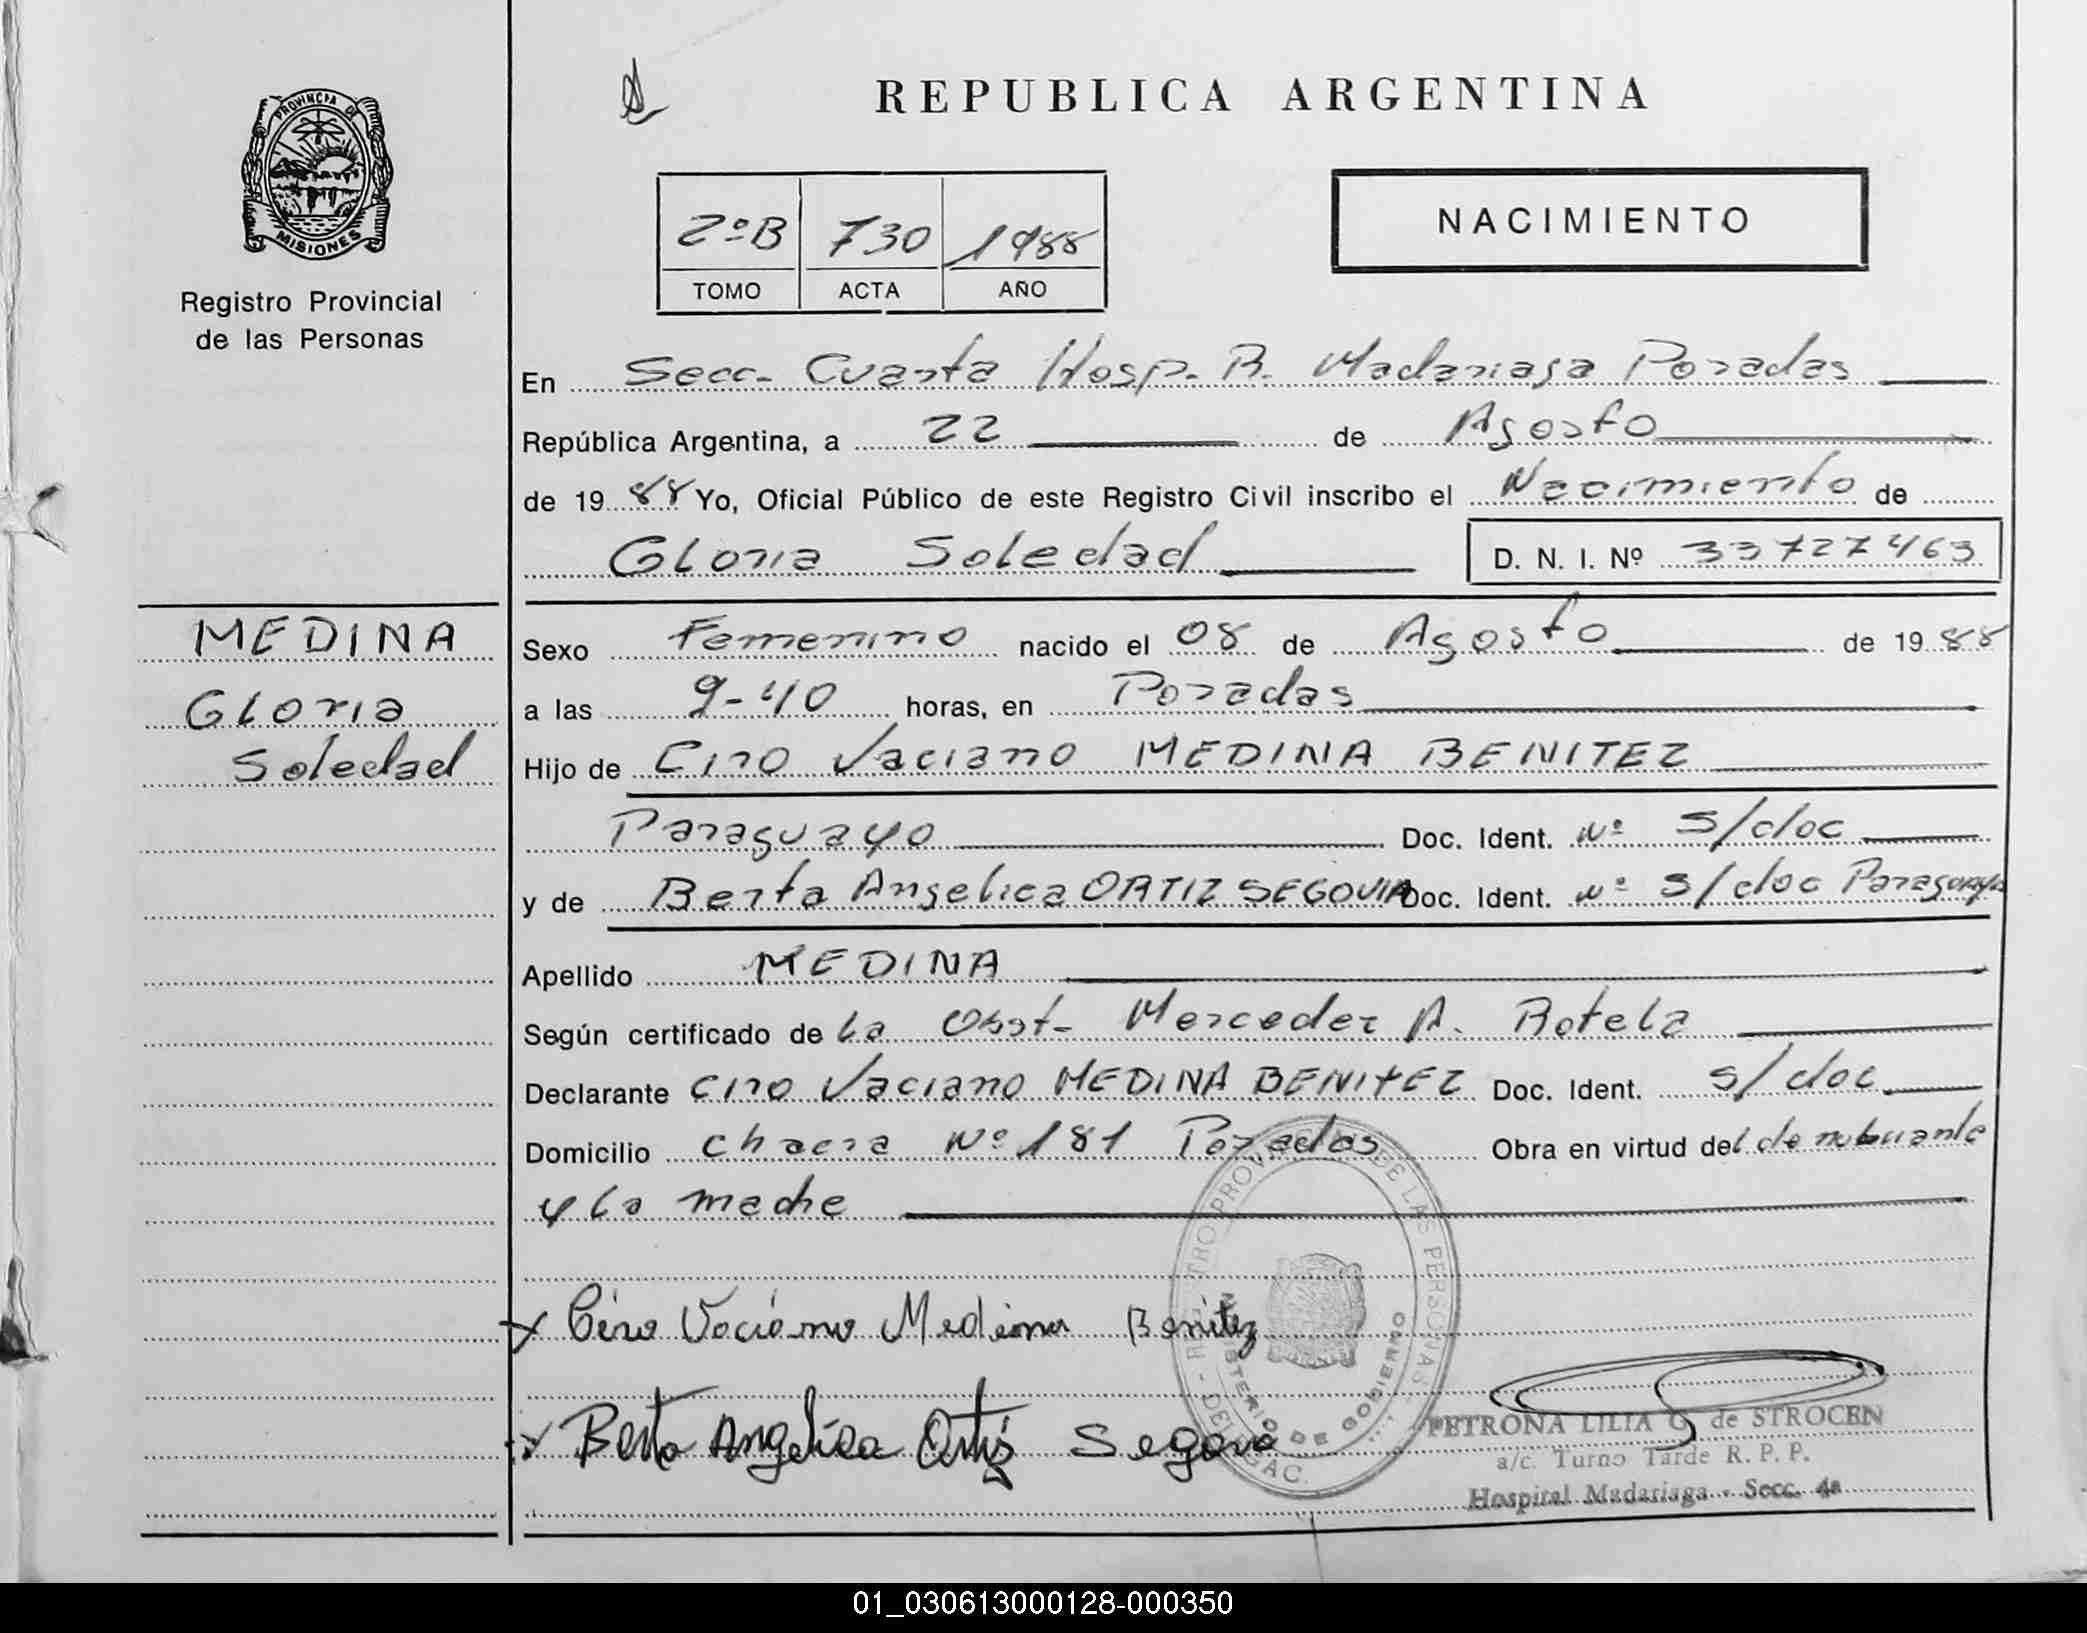 PROVINCIA DE
MISIONES
Registro Provincial
de las Personas
MEDINA
Gloria
Soledad
REPUBLICA ARGENTINA
2ºB 730 1988
TOMO ACTA AÑO
NACIMIENTO
En Secc. Cuarta Hosp. R. Madariaga Posadas
República Argentina, a 22 de Agosto
de 1988 Yo, Oficial Público de este Registro Civil inscribo el Nacimiento de
Gloria Soledad D. N. I. Nº 33727463
Sexo Femenino nacido el 08 de Agosto de 1988
a las 9-40 horas, en Posadas
Hijo de Ciro Vaciano MEDINA BENITEZ
Paraguayo Doc. Ident. Nº S/doc
y de Berta Angelica ORTIZ SEGOVIA Doc. Ident. Nº S/doc Paraguaya
Apellido MEDINA
Según certificado de la Obst. Mercedes A. Rotela
Declarante Ciro Vaciano MEDINA BENITEZ Doc. Ident. S/doc
Domicilio Chacra Nº 181 Posadas Obra en virtud del denunciante
y la madre
Ciro Vaciano Medina Benitez
Berta Angelica Ortiz Segovia
REGISTRO PROVINCIAL DE LAS PERSONAS - DELEGAC.
MINISTERIO DE GOBIERNO
PETRONA LILIA G de STROCEN
a/c. Turno Tarde R. P. P.
Hospital Madariaga - Secc. 4a
01_030613000128-000350